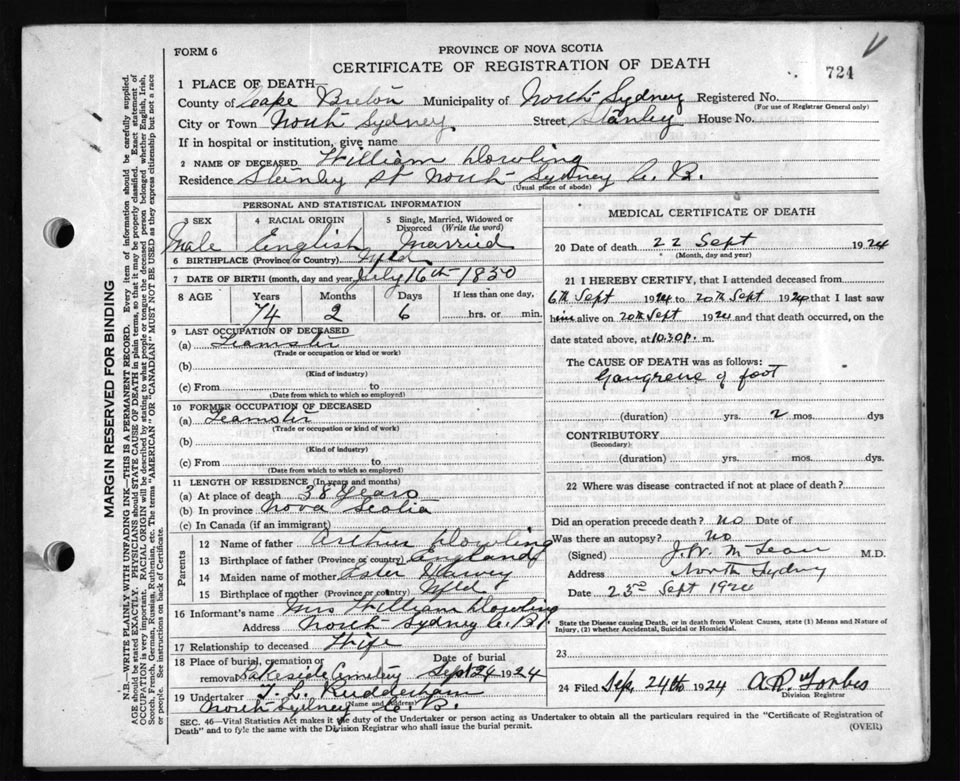 FORM 6
PROVINCE OF NOVA SCOTIA
CERTIFICATE OF REGISTRATION OF DEATH
724
1 PLACE OF DEATH
County of Cape Breton Municipality of North Sydney Registered No.
(For use of Registrar General only)
City or Town North Sydney Street Stanley House No.
If in hospital or institution, give name
2 NAME OF DECEASED William Dowling
Residence Stanley St North Sydney C. B.
(Usual place of abode)
PERSONAL AND STATISTICAL INFORMATION
3 SEX 4 RACIAL ORIGIN 5 Single, Married, Widowed or Divorced (Write the word)
Male English Married
6 BIRTHPLACE (Province or Country) Nfld
7 DATE OF BIRTH (month, day and year) July 16th 1850
8 AGE Years Months Days If less than one day,
74 2 6 hrs. or min.
9 LAST OCCUPATION OF DECEASED
(a) Teamster
(Trade or occupation or kind of work)
(b)
(Kind of industry)
(c) From to
(Date from which to which so employed)
10 FORMER OCCUPATION OF DECEASED
(a) Teamster
(Trade or occupation or kind of work)
(b)
(Kind of industry)
(c) From to
(Date from which to which so employed)
11 LENGTH OF RESIDENCE (In years and months)
(a) At place of death 38 Years
(b) In province Nova Scotia
(c) In Canada (if an immigrant)
Parents
12 Name of father Arthur Dowling
13 Birthplace of father (Province or country) England
14 Maiden name of mother Ester
15 Birthplace of mother (Province or country) Nfld
16 Informant's name Mrs William Dowling
Address North Sydney C. B.
17 Relationship to deceased Wife
18 Place of burial, cremation or removal Lakeside Cemetery Date of burial Sept 24 1924
19 Undertaker J. L. Rudderham
(Name and address)
North Sydney C. B.
MEDICAL CERTIFICATE OF DEATH
20 Date of death 22 Sept 1924
(Month, day and year)
21 I HEREBY CERTIFY, that I attended deceased from
6th Sept 1924 to 20th Sept 1924 that I last saw
him alive on 20th Sept 1924 and that death occurred, on
date stated above, at 10.30 P. m.
The CAUSE OF DEATH was as follows:
Gangrene of foot
(duration) yrs. 2 mos. dys
CONTRIBUTORY
(Secondary)
(duration) yrs. mos. dys.
22 Where was disease contracted if not at place of death?
Did an operation precede death? No Date of
Was there an autopsy? No
(Signed) J. W. McLean M.D.
Address North Sydney
Date 23rd Sept 1924
State the Disease causing Death, or in death from Violent Causes, state (1) Means and Nature of Injury, (2) whether Accidental, Suicidal or Homicidal.
23
24 Filed Sep. 24th 1924 A. R. Forbes
Division Registrar
SEC. 46—Vital Statistics Act makes it the duty of the Undertaker or person acting as Undertaker to obtain all the particulars required in the "Certificate of Registration of
Death" and to fyle the same with the Division Registrar who shall issue the burial permit.
(OVER)
MARGIN RESERVED FOR BINDING
N.B.—WRITE PLAINLY WITH UNFADING INK—THIS IS A PERMANENT RECORD. Every item of information should be carefully supplied.
AGE should be stated EXACTLY. PHYSICIANS should STATE CAUSE OF DEATH in plain terms, so that it may be properly classified. Exact statement of
OCCUPATION is very important. RACIAL ORIGIN will be described by stating to what people or tongue the deceased person belonged whether English, Irish,
Scotch, French, German, Russian, Ruthenian, etc. The terms "AMERICAN" OR "CANADIAN" MUST NOT BE USED as they express citizenship but not a race
or people. See instructions on back of Certificate.